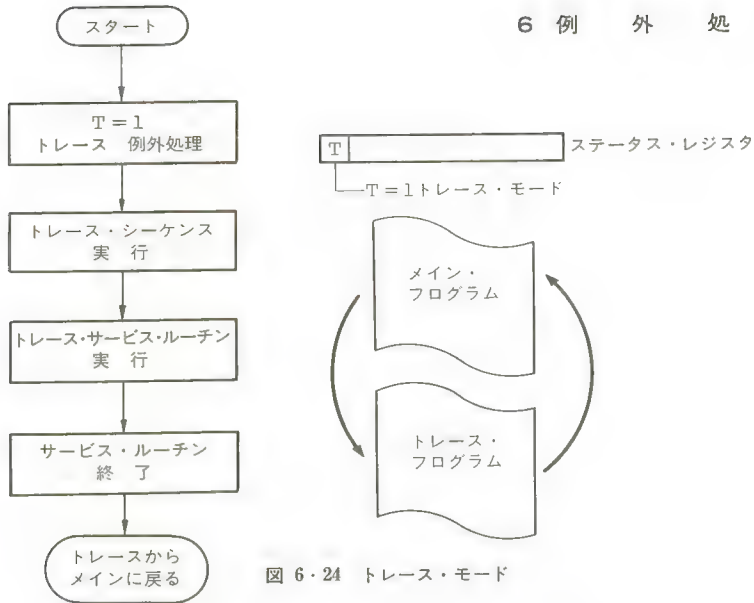 6 例 外 処
スタート
T=1
トレース 例外処理
トレース・シーケンス
実 行
トレース・サービス・ルーチン
実 行
サービス・ルーチン
終 了
トレースから
メインに戻る
T
ステータス・レジスタ
T=1トレース・モード
メイン・
フログラム
トレース・
フログラム
図 6・24 トレース・モード